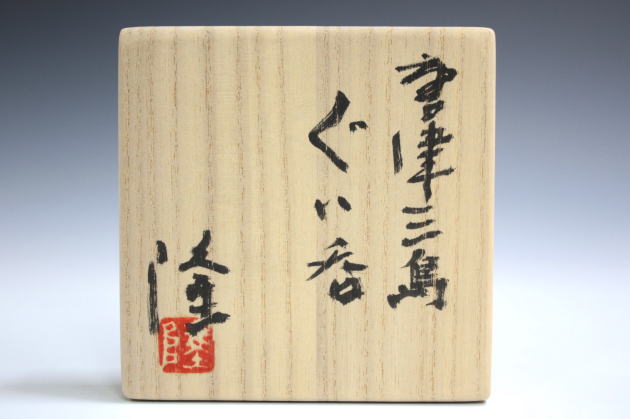 唐津三島
ぐい呑
隆